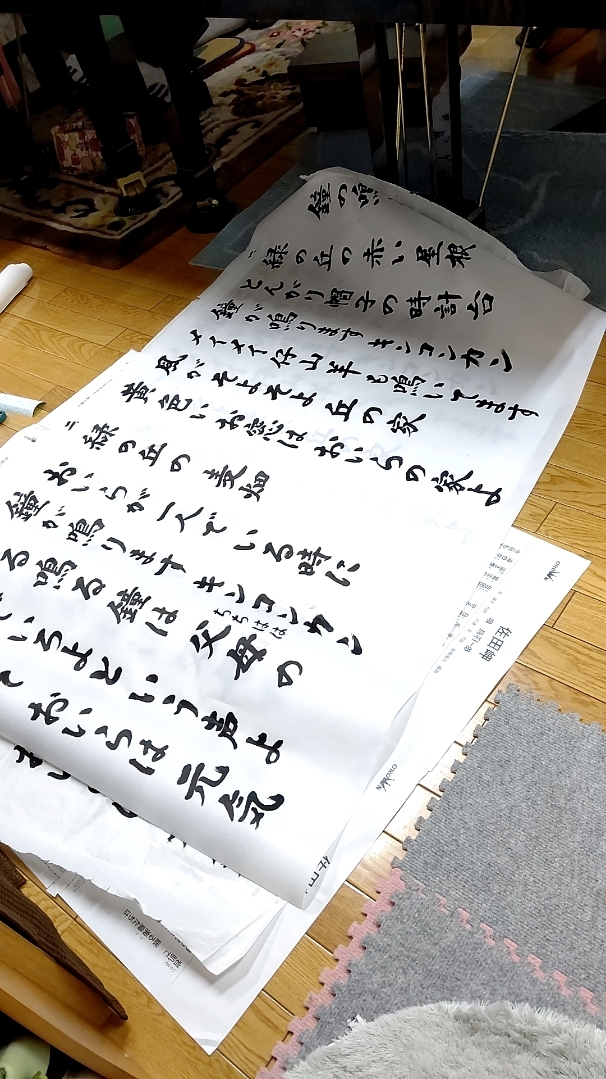 鐘の鳴
一 緑の丘の赤い屋根
とんがり帽子の時計台
鐘が鳴りますキンコンカン
メイメイ仔山羊も鳴いてます
風がそよそよ丘の家
黄色いお窓はおいらの家よ
二 緑の丘の麦畑
おいらが一人でいる時に
鐘が鳴りますキンコンカン
る鳴る鐘は父母の
ちちはは
いろよという声よ
ておいらは元気
佐田岬